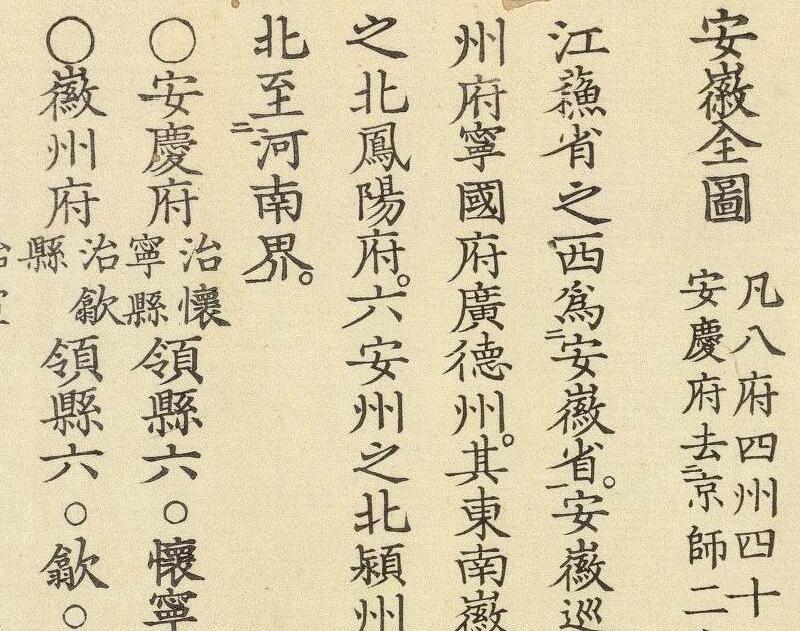 安徽全圖
凡八府四州四十
安慶府去京師二
江蘓省之西爲安徽省。安徽巡
州府寧國府廣德州。其東南徽
之北鳳陽府。六安州之北潁州
北至河南界。
○安慶府
治懷
寧縣
領縣六。○懷寧
○徽州府
治歙
縣
領縣六。○歙。○